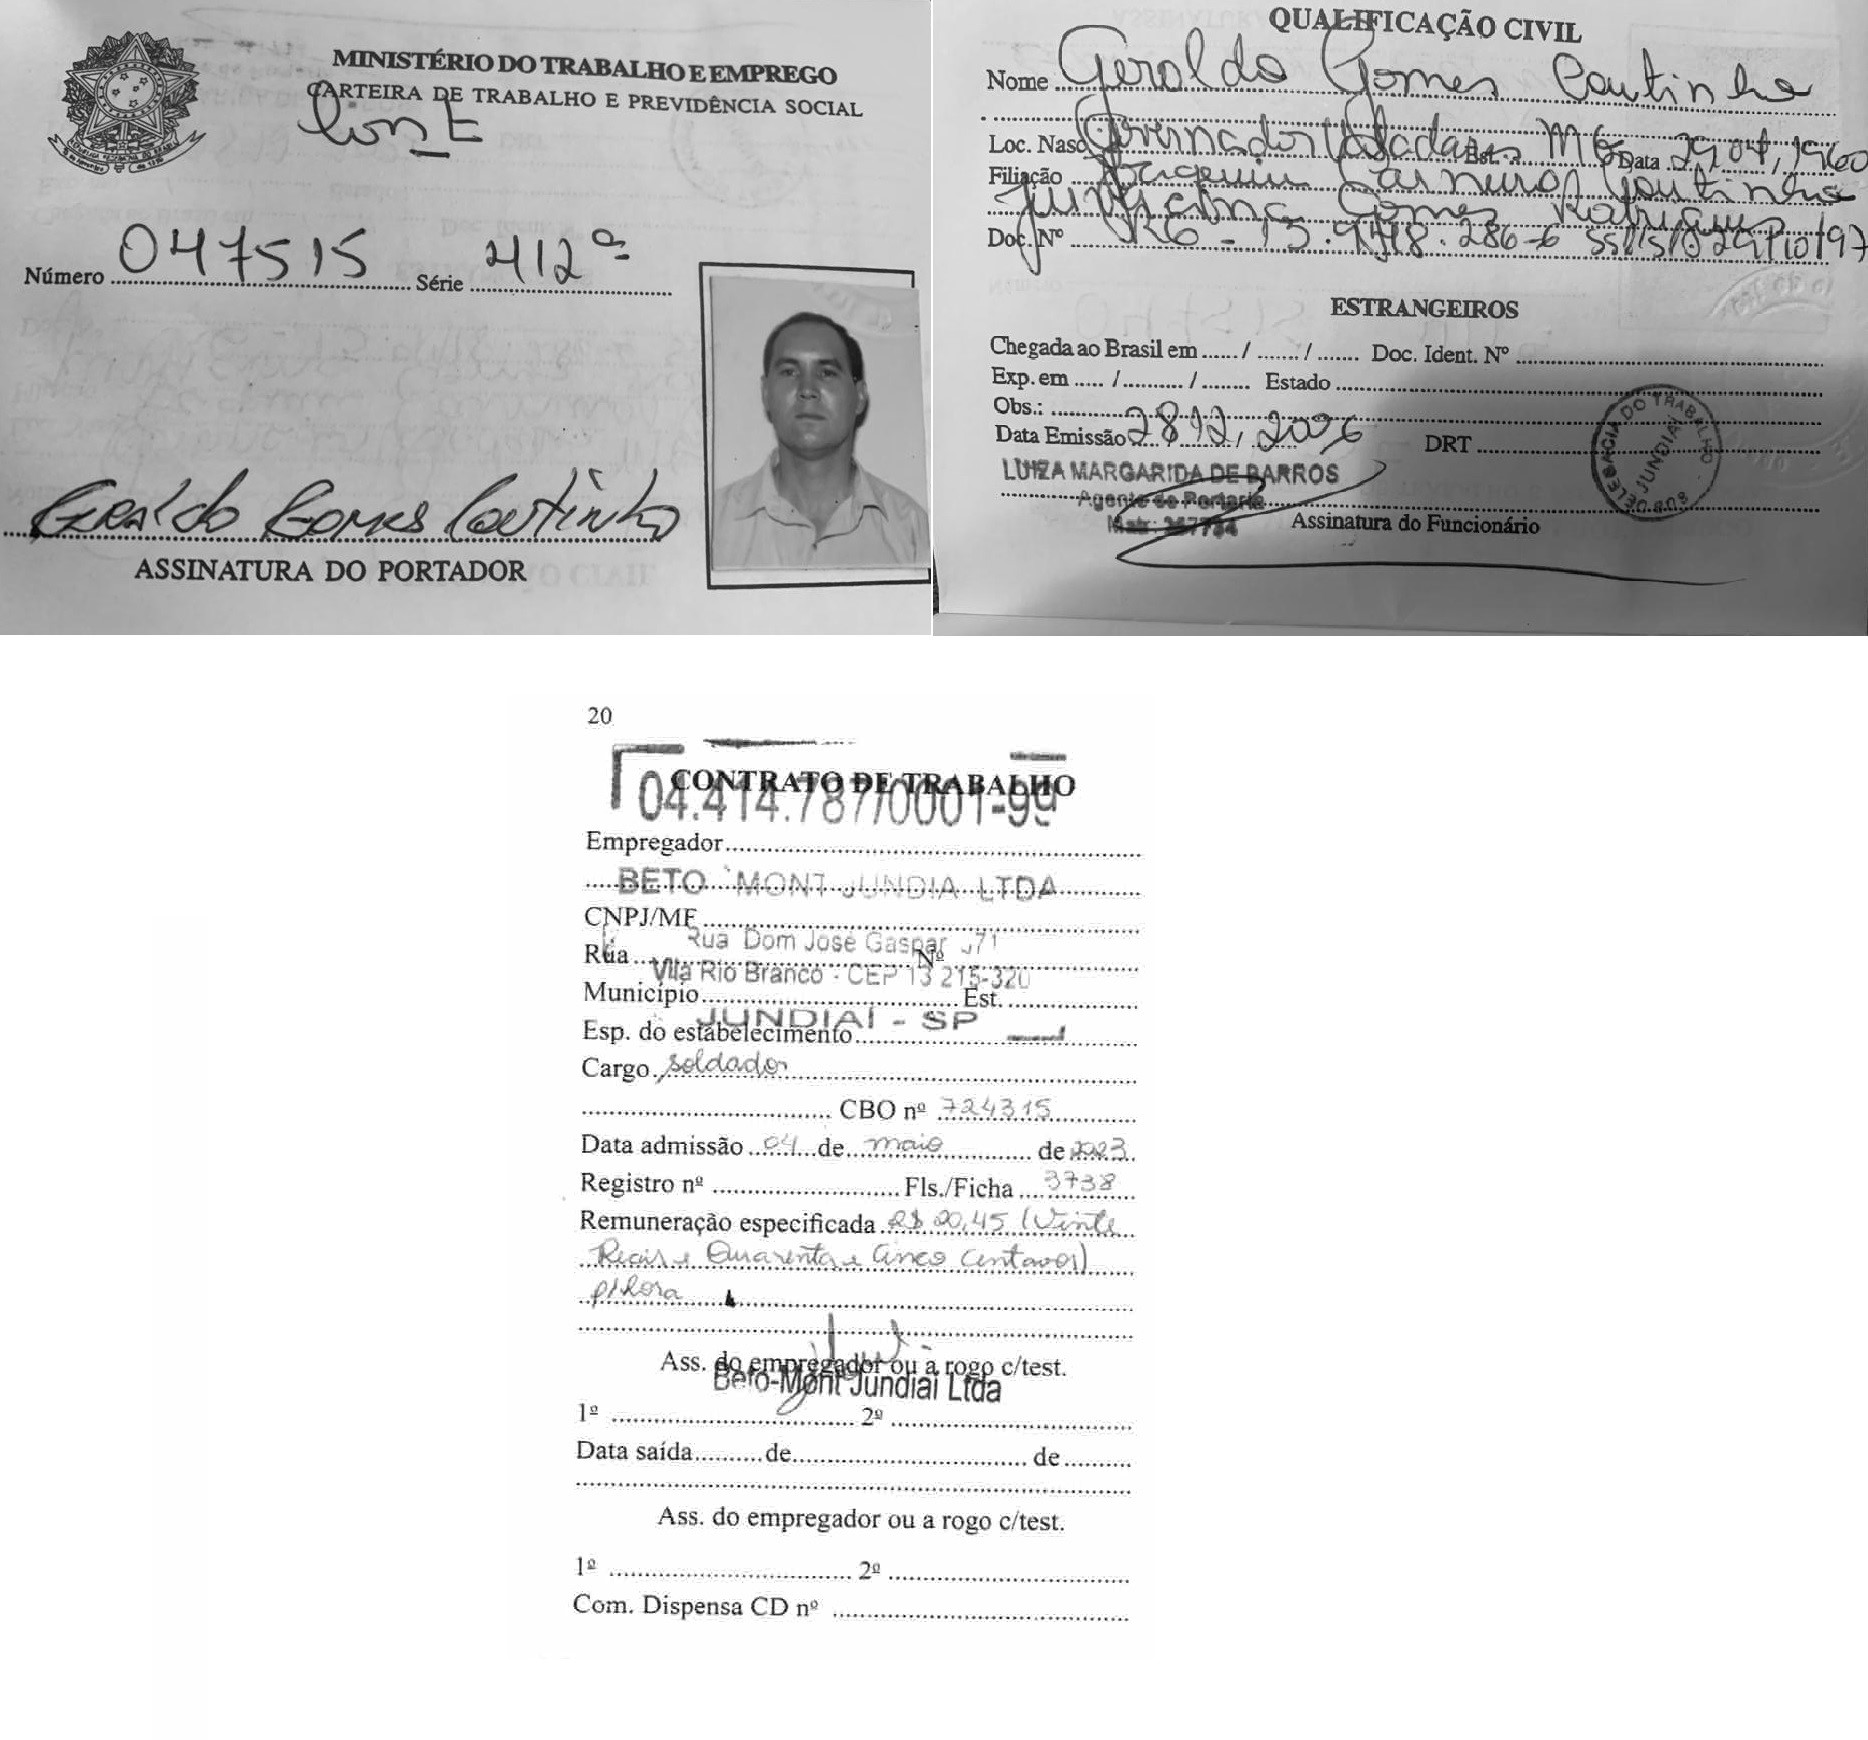 MINISTÉRIO DO TRABALHO E EMPREGO
CARTEIRA DE TRABALHO E PREVIDÊNCIA SOCIAL
Cont
Número 047515 Série 412ª
Geraldo Gomes Coutinho
ASSINATURA DO PORTADOR
QUALIFICAÇÃO CIVIL
Nome Geraldo Gomes Coutinho
Loc. Nasc. Governador Valadares Est. MG Data 29,07,1960
Filiação Joaquim Carneiro Coutinho
Gomes Rodrigues
Doc. Nº RG - 286-6 SSP/SP 10/97
ESTRANGEIROS
Chegada ao Brasil em ...... / ....... / ....... Doc. Ident. Nº
Exp. em ..... /.......... / ........ Estado
Obs.:
Data Emissão 28,12,2006 DRT
LUIZA MARGARIDA DE BARROS
Agente de Portaria
Matr.: 257734
Assinatura do Funcionário
SUBDELEGACIA DO TRABALHO
JUNDIAÍ
20
CONTRATO DE TRABALHO
04.414.787/0001-99
Empregador
BETO MONT JUNDIA LTDA
CNPJ/MF
Rua Dom José Gaspar 571
Rua Nº
Vila Rio Branco - CEP 13 215-320
Município Est.
JUNDIAÍ - SP
Esp. do estabelecimento
Cargo soldador
CBO nº 724315
Data admissão 04 de maio de 2023
Registro nº Fls./Ficha 3738
Remuneração especificada R$ 20,45 (Vinte
Reais e Quarenta e Cinco Centavos)
p/hora
Ass. do empregador ou a rogo c/test.
Beto-Mont Jundiaí Ltda
1º 2º
Data saída de de
Ass. do empregador ou a rogo c/test.
1º 2º
Com. Dispensa CD nº